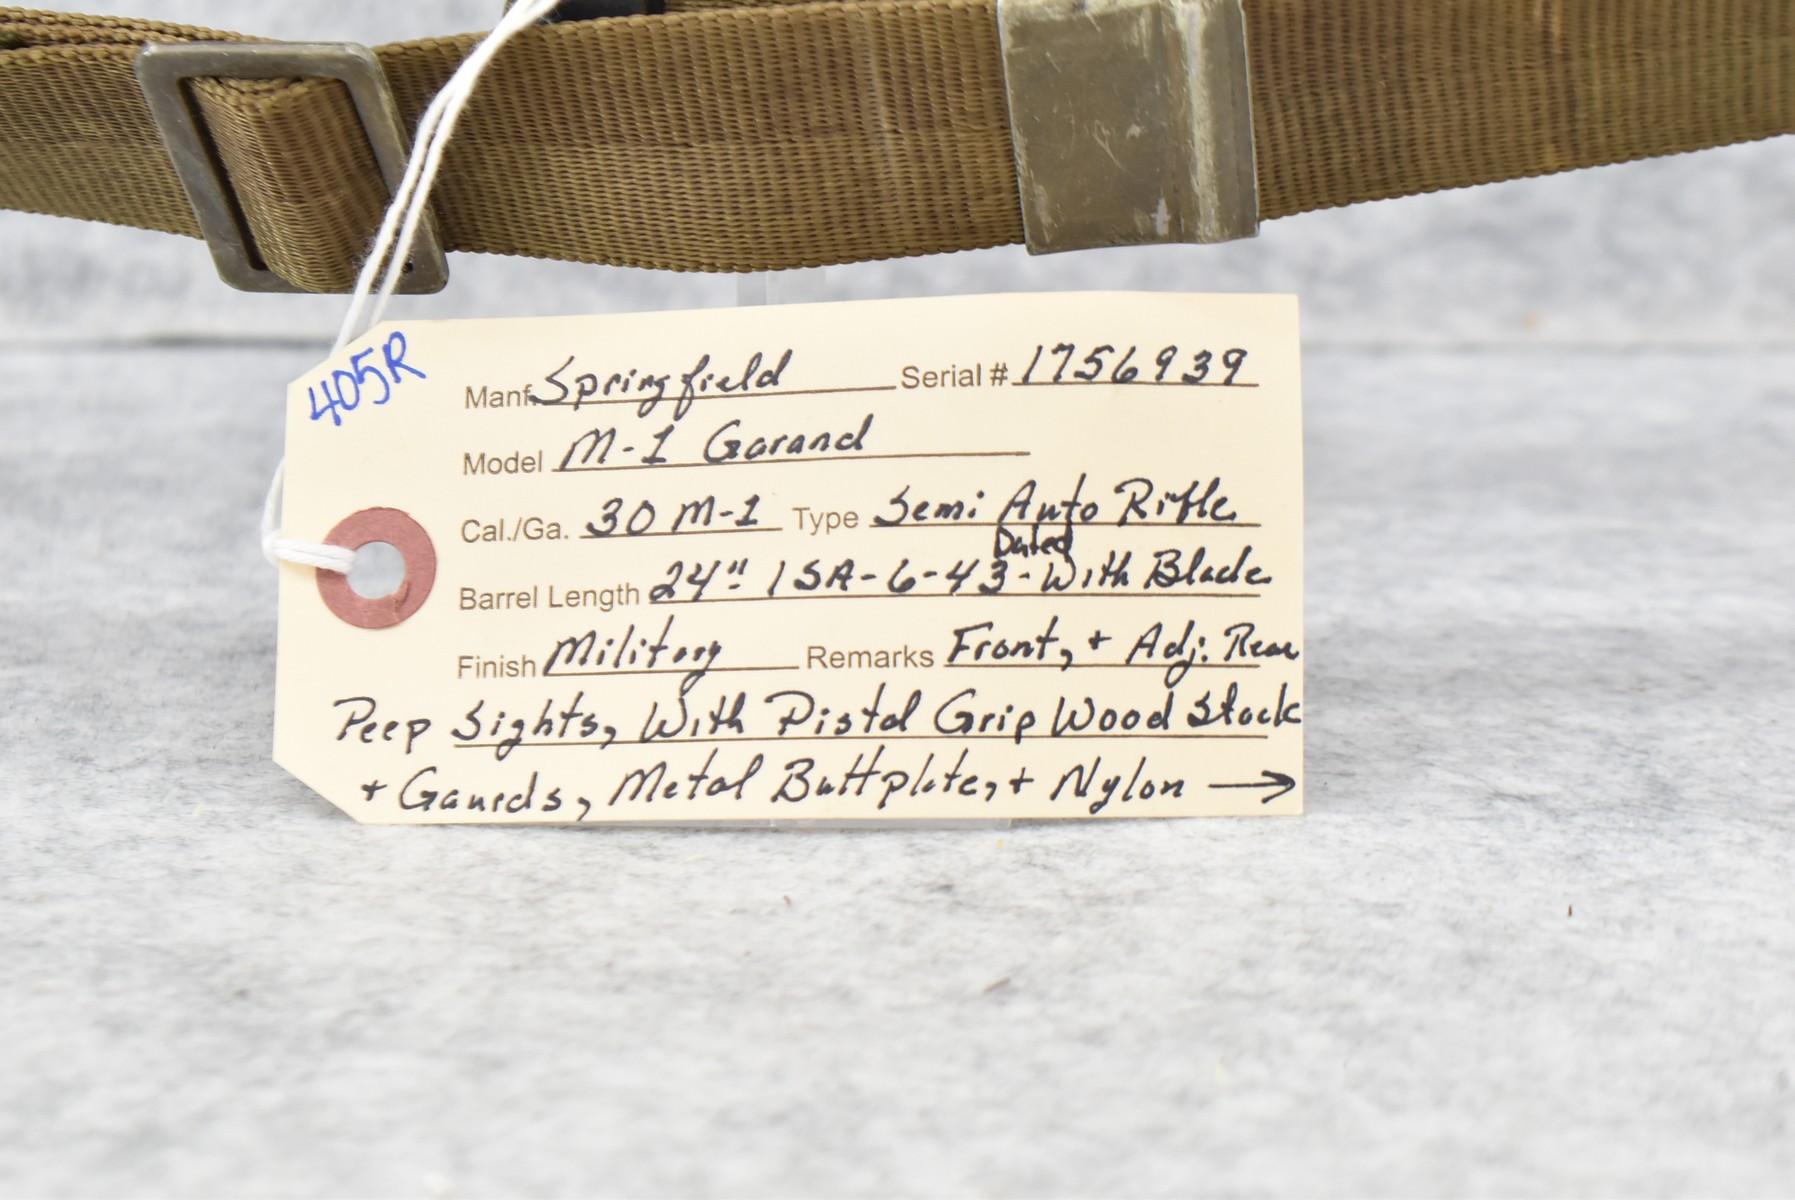 405R
Manf. Springfield Serial # 1756939
Model M-1 Garand
Cal./Ga. 30 M-1 Type Semi Auto Rifle
Dated
Barrel Length 24" 1SA-6-43-With Blade
Finish Military Remarks Front, + Adj. Rear
Peep Sights, With Pistol Grip Wood Stock
+ Gaurds, Metal Buttplate, + Nylon →